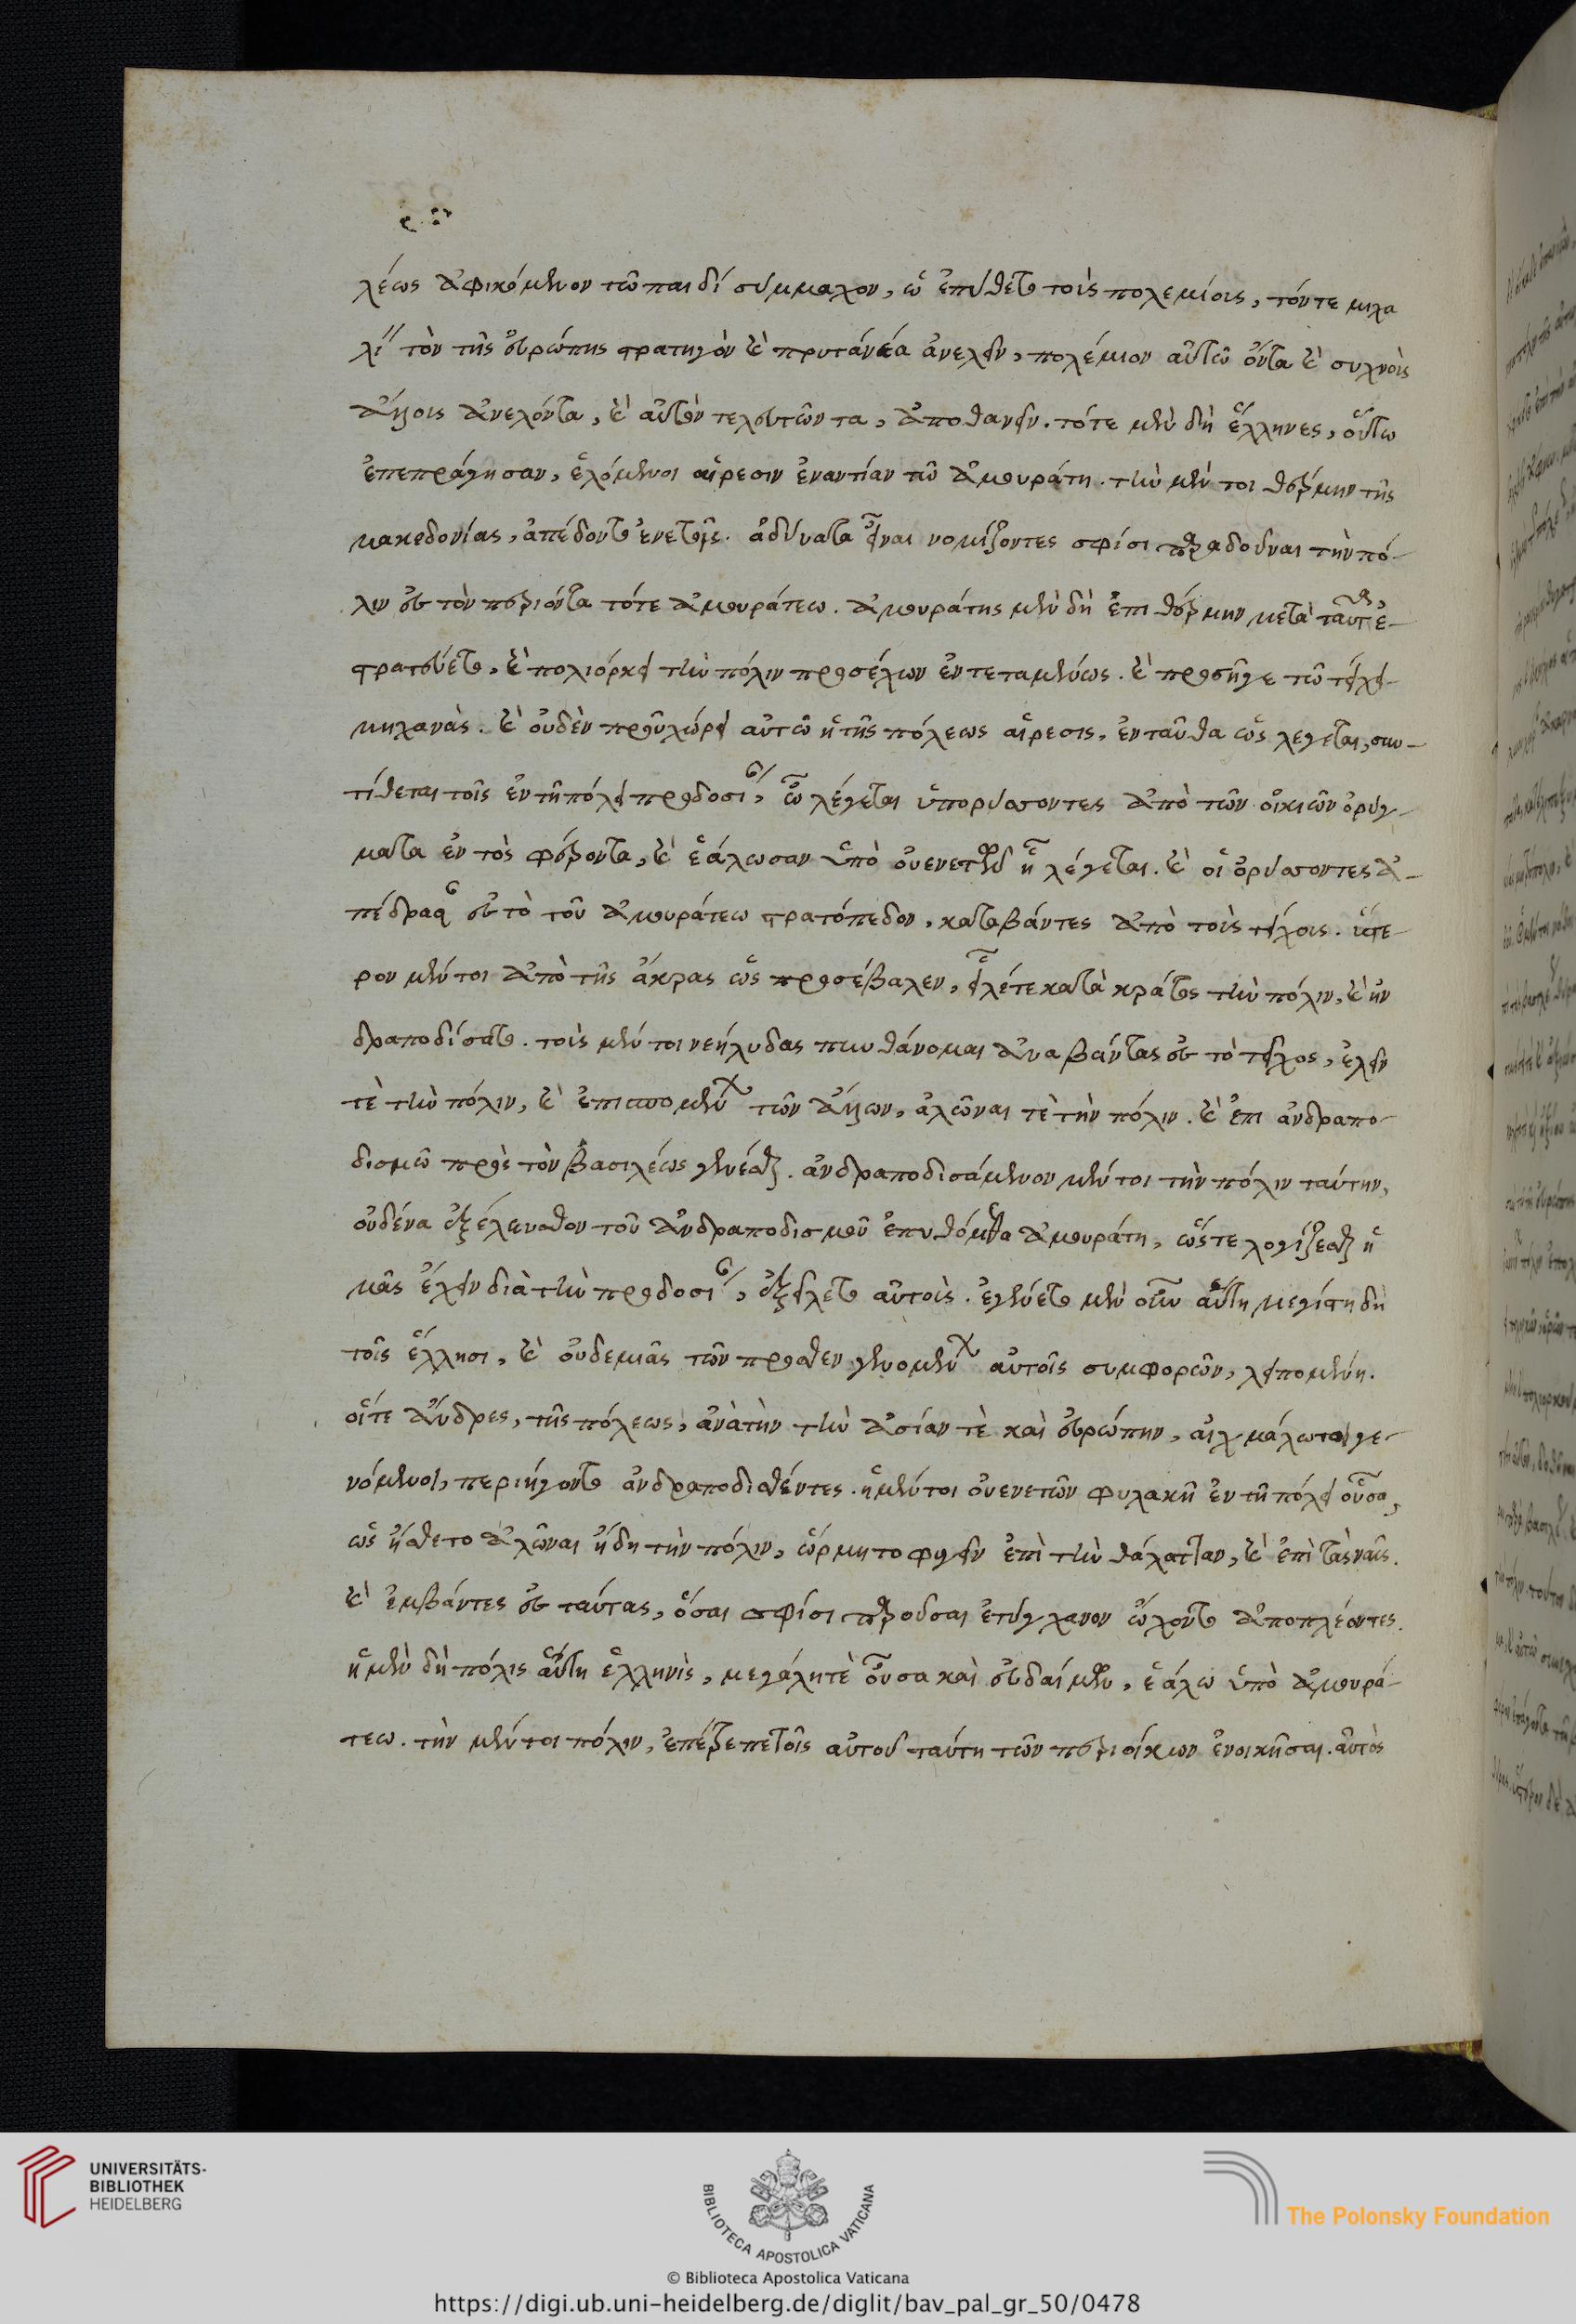 λέως ἀφικόμενον τῶ παιδί σύμμαχον, ὦ ἐπύθετο τοὺς πολεμίους, τόντε μιχα
λὴ τὸν τῆς εὐρώπης στρατηγὸν καὶ πρυτάνεα ἀνελεῖν, πολέμιον αὐτῶ ὄντα καὶ συχνοὺς
ἄλλους ἀνελόντα, καὶ αὐτὸν τελευτῶντα, ἀποθανεῖν. τότε μὲν δὴ ἕλληνες, οὕτω
ἐπεπράγησαν, ἑλόμενοι αἵρεσιν ἐναντίαν τῶ ἀμουράτη. τὴν μέν τοι θέρμην τῆς
μακεδονίας, ἀπέδοντο ἐνετοῖς. ἀδύνατα εἶναι νομίζοντες σφίσι παραδοῦναι τὴν πό-
λιν ἐς τὸν περιόντα τότε ἀμουράτεω. ἀμουράτης μὲν δὴ ἐπι θέρμην μετὰ ταῦτα ἐ-
στρατεύετο, καὶ πολιόρκει τὴν πόλιν προσέχων ἐντεταμένως. καὶ προσῆγε τῶ τείχει
μηχανὰς. καὶ οὐδὲν προὐχώρει αὐτῶ ἡ τῆς πόλεως αἵρεσις, ἐνταῦθα ὡς λέγεται, συν-
τίθεται τοῖς ἐν τῆ πόλει προδοσίαν, ὧν λέγεται ὑπορύσσοντες ἀπὸ τῶν οἰκιῶν ὀρύγ-
ματα ἐν τὸς φέροντα, καὶ ἑάλωσαν ὑπὸ οὐενετῶν ἧ λέγεται. καὶ οἱ ὀρύσσοντες ἀ-
πέδρασαν ἐς τὸ τοῦ ἀμουράτεω στρατόπεδον, καταβάντες ἀπὸ τοὺς τείχους. ὕστε-
ρον μέν τοι ἀπὸ τῆς ἄκρας ὡς προσέβαλεν, εἷλέ τε κατὰ κράτος τὴν πόλιν, καὶ ἠν
δραποδίσατο. τοὺς μέν τοι νεήλυδας πυνθάνομαι ἀναβάντας ἐς τὸ τεῖχος, ἑλεῖν
τὲ τὴν πόλιν, καὶ ἐπισπομένων τῶν ἄλλων, ἁλῶναι τὲ τὴν πόλιν. καὶ ἐπι ἀνδραπο-
δισμῶ πρὸς τὸν βασιλέως γενέσθαι. ἀνδραποδισάμενον μέν τοι τὴν πόλιν ταύτην,
οὐδένα ἐξέλευσθον τοῦ ἀνδραποδισμοῦ ἐπυθόμεθα ἀμουράτη, ὥς τε λογίζεσθαι ἡ
μᾶς ἔχειν διὰ τὴν προδοσίαν, ἐξείλετο αὐτοὺς. ἐγένετο μὲν οὖν αὕτη μεγίστη δὴ
τοῖς ἕλλησι, καὶ οὐδεμιᾶς τῶν πρόσθεν γενομένων αὐτοῖς συμφορῶν, λειπομένη.
οἵτε ἄνδρες, τῆς πόλεως, ἀνὰ τὴν τὴν ἀσίαν τὲ καὶ εὐρώπην, αἰχμάλωτοι γε-
νόμενοι, περιήγοντο ἀνδραποδισθέντες. ἡ μέν τοι οὐενετῶν φυλακὴ ἐν τῆ πόλει οὖσα,
ὡς ἤσθετο ἁλῶναι ἤδη τὴν πόλιν, ὥρμητο φυγεῖν ἐπὶ τὴν θάλατταν, καὶ ἐπὶ τὰς ναῦς.
καὶ ἐμβάντες ἐς ταύτας, ὅσαι σφίσι παροῦσαι ἐτύγχανον ὤχοντο ἀποπλέοντες.
ἡ μὲν δὴ πόλις αὕτη ἑλληνὶς, μεγάλη τὲ οὖσα καὶ εὐδαίμων, ἑάλω ὑπὸ ἀμουρά-
τεω. τὴν μέν τοι πόλιν, ἐπέτρεπε τοῖς αὐτοῦ ταύτη τῶν περιοίκων ἐνοικῆσαι. αὐτὸς
UNIVERSITÄTS-
BIBLIOTHEK
HEIDELBERG
BIBLIOTECA APOSTOLICA VATICANA
The Polonsky Foundation
© Biblioteca Apostolica Vaticana
https://digi.ub.uni-heidelberg.de/diglit/bav_pal_gr_50/0478